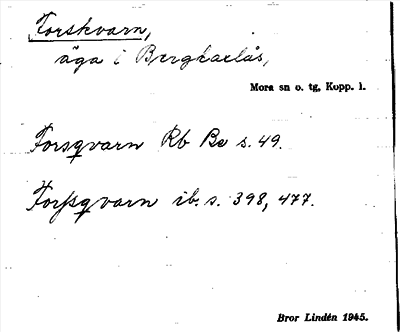 Forskvarn,
äga i Bergkarlås,
Mora sn o. tg, Kopp. l.
Forsqvarn Rb Be s. 49.
Forßqvarn ib. s. 398, 477.
Bror Lindén 1945.